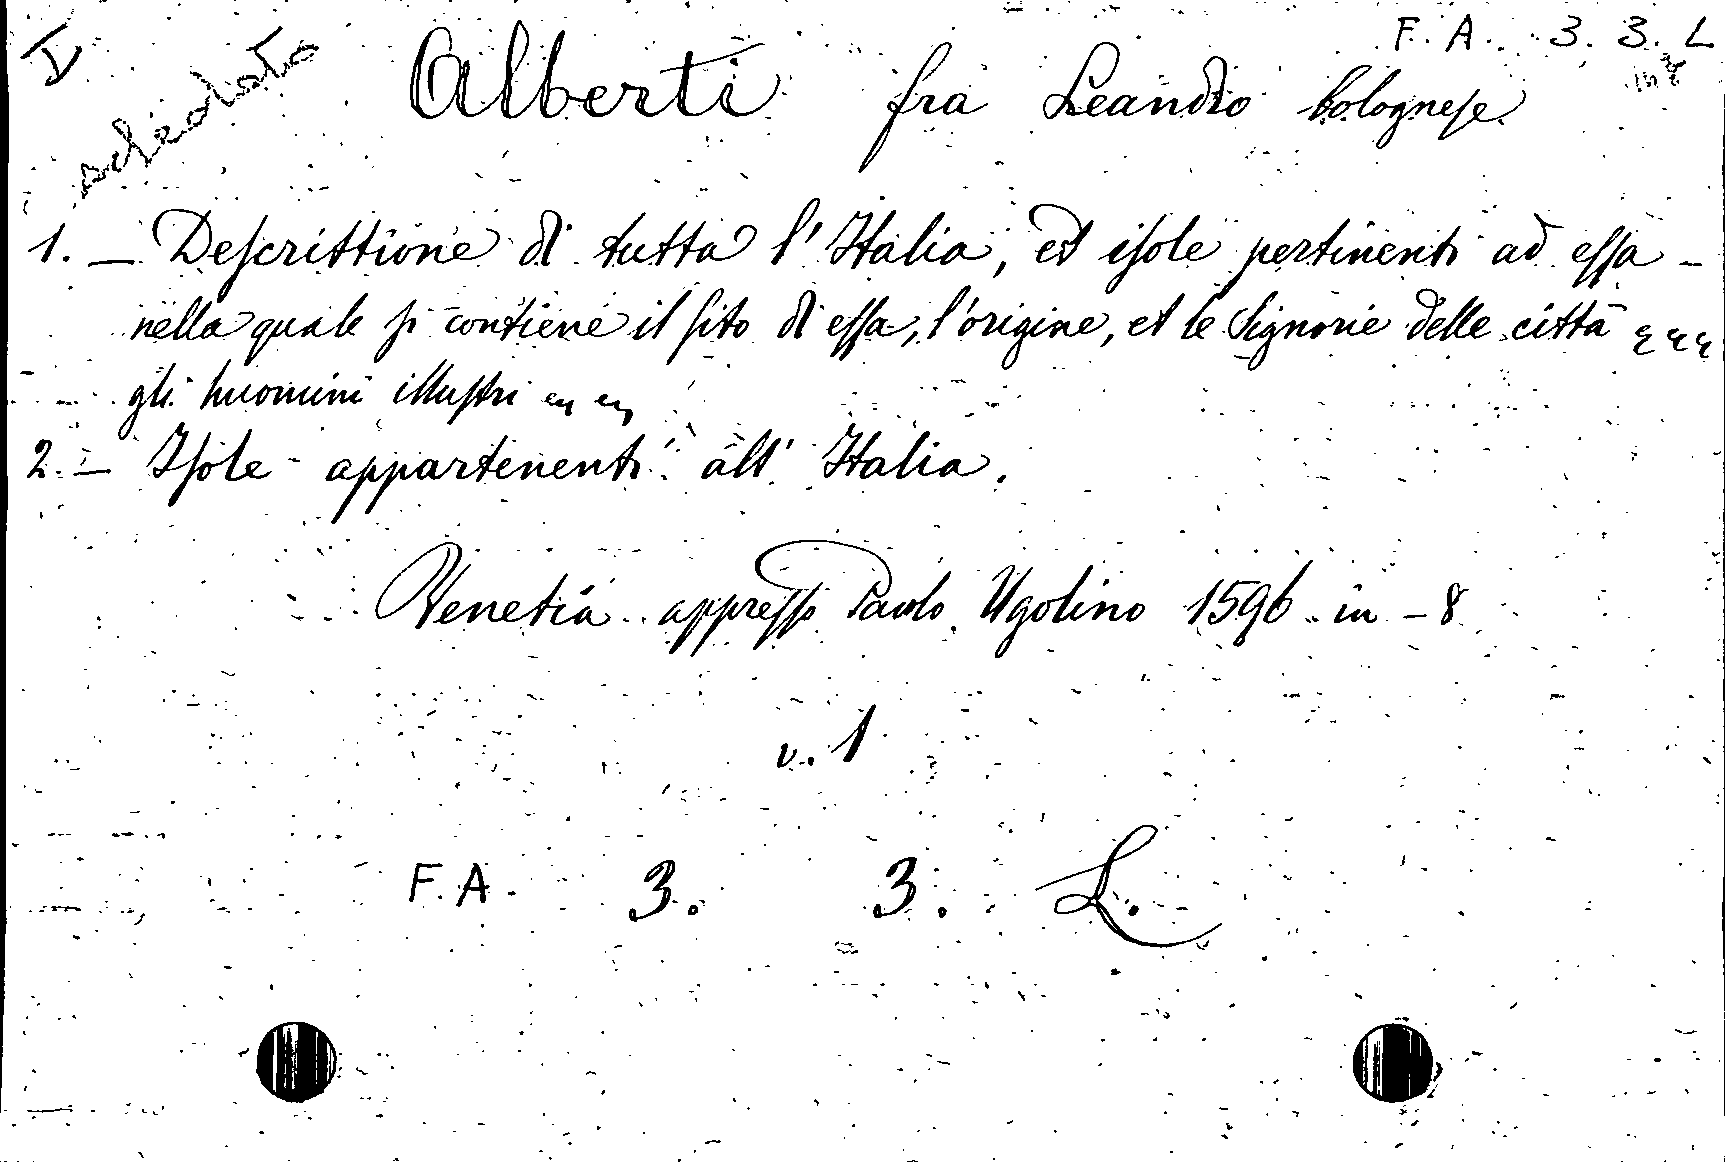 I
schedato
F. A. 3. 3. L
Alberti fra Leandro bolognese
1. — Descrittione di tutta l'Italia, et isole pertinenti ad essa -
nella quale si contiene il sito di essa, l'origine, et le Signorie delle città
gli huomini illustri
2. — Isole appartenenti all' Italia.
Venetia appresso Paolo Ugolino 1596 in - 8
v. 1
F. A. 3. 3. L.